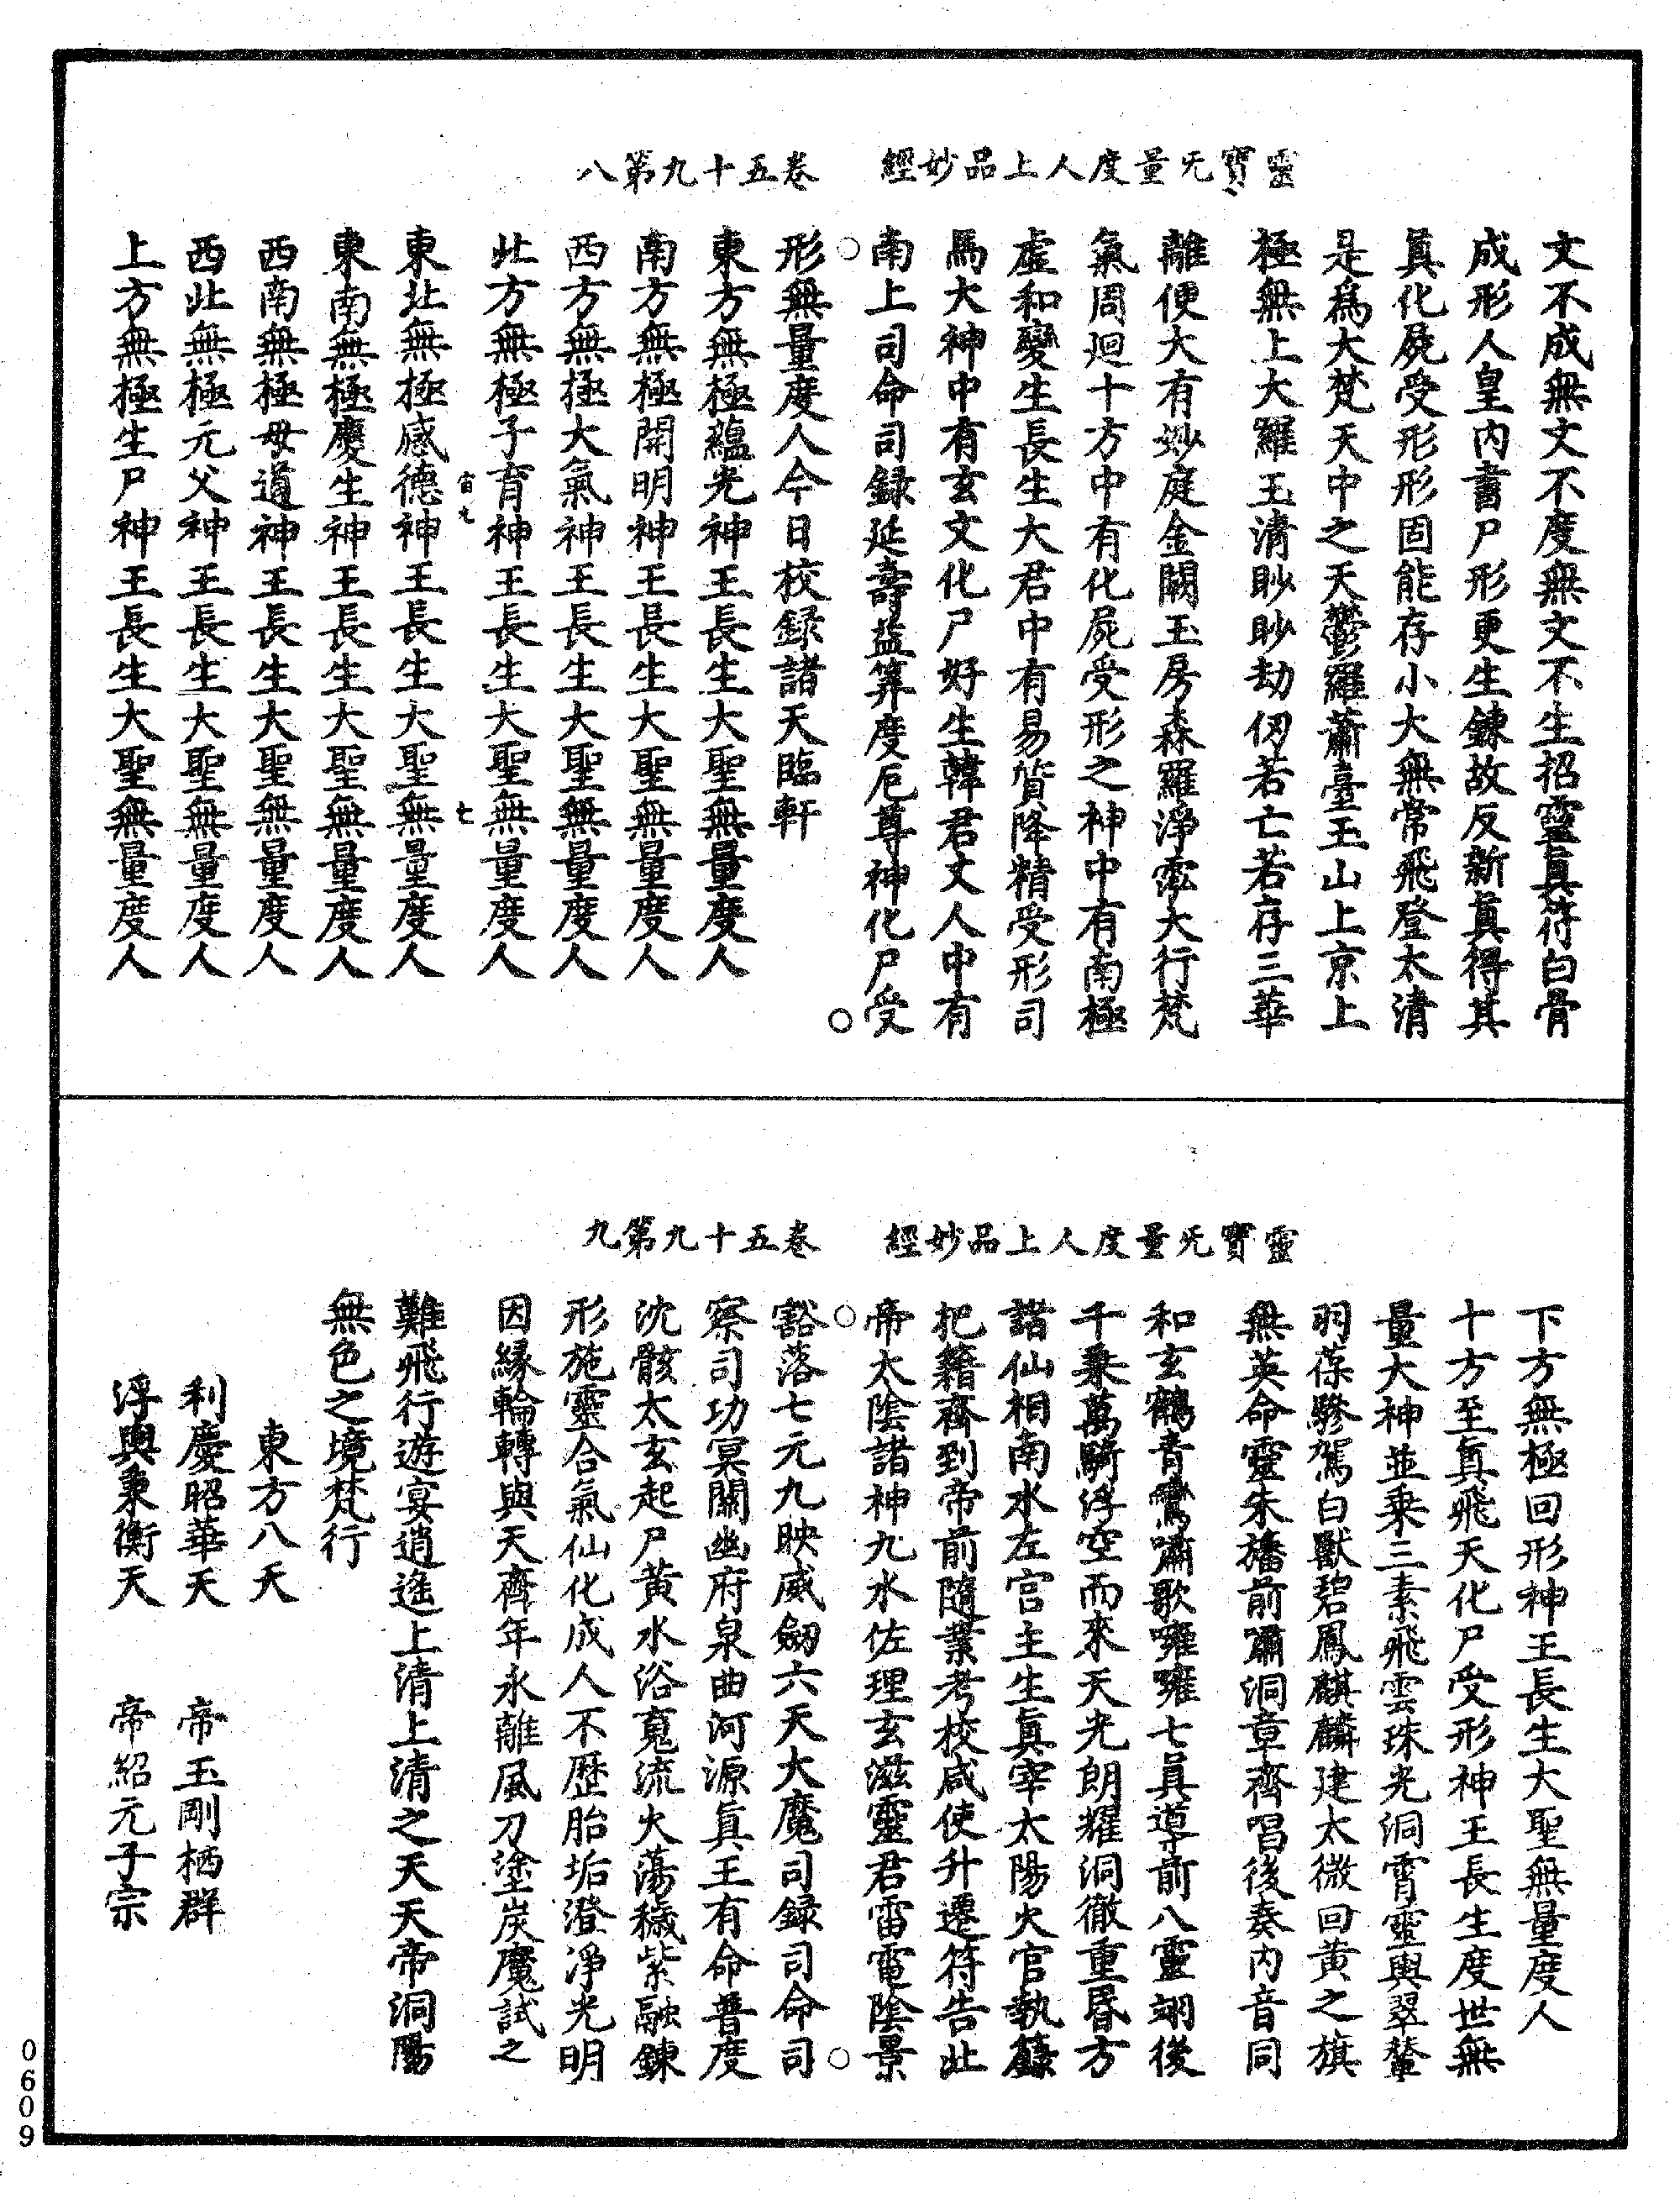 靈寶无量度人上品妙經　卷五十九第八
文不成無文不度無文不生招靈眞符白骨
成形人皇內書尸形更生鍊故反新眞得其
眞化屍受形形固能存小大無常飛登太清
是爲大梵天中之天鬱羅蕭臺玉山上京上
極無上大羅玉清眇眇劫仞若亡若存三華
離便大有妙庭金闕玉房森羅淨霐大行梵
氣周迴十方中有化屍受形之神中有南極
虛和變生長生大君中有易質降精受形司
馬大神中有玄文化尸好生韓君丈人中有
南上司命司録延壽益筭度厄尊神化尸受
形無量度人今日校録諸天臨軒
東方無極蘊光神王長生大聖無量度人
南方無極開明神王長生大聖無量度人
西方無極大氣神王長生大聖無量度人
北方無極子育神王長生大聖無量度人
宙九　七
東北無極感德神王長生大聖無量度人
東南無極慶生神王長生大聖無量度人
西南無極母道神王長生大聖無量度人
西北無極元父神王長生大聖無量度人
上方無極生尸神王長生大聖無量度人
靈寶无量度人上品妙經　卷五十九第九
下方無極回形神王長生大聖無量度人
十方至眞飛天化尸受形神王長生度世無
量大神並乗三素飛雲珠光洞霄靈輿翠輦
羽葆驂駕白獸碧鳳麒麟建太微回黃之旗
無英命靈朱旛前嘯洞章齊唱後奏內音同
和玄鶴青鸞嘯歌嗺嗺七員導前八靈翊後
千乗萬騎浮空而來天光朗耀洞徹重昏方
諸仙相南水左宫主生眞宰太陽火官執籙
把籍齊到帝前隨業考校咸使升遷符告北
帝太陰諸神九水佐理玄滋靈君雷電陰景
豁落七元九映威劒六天大魔司録司命司
察司功冥關幽府泉曲河源眞王有命普度
沈骸太玄起尸黃水浴寬流火蕩穢紫融鍊
形施靈合氣仙化成人不歷胎垢澄淨光明
因緣輪轉與天齊年永離風刀塗炭魔試之
難飛行遊宴逍遙上清上清之天天帝洞陽
無色之境梵行
東方八天
利慶昭華天　帝玉剛栖群
浮輿秉衡天　帝紹元子宗
0609